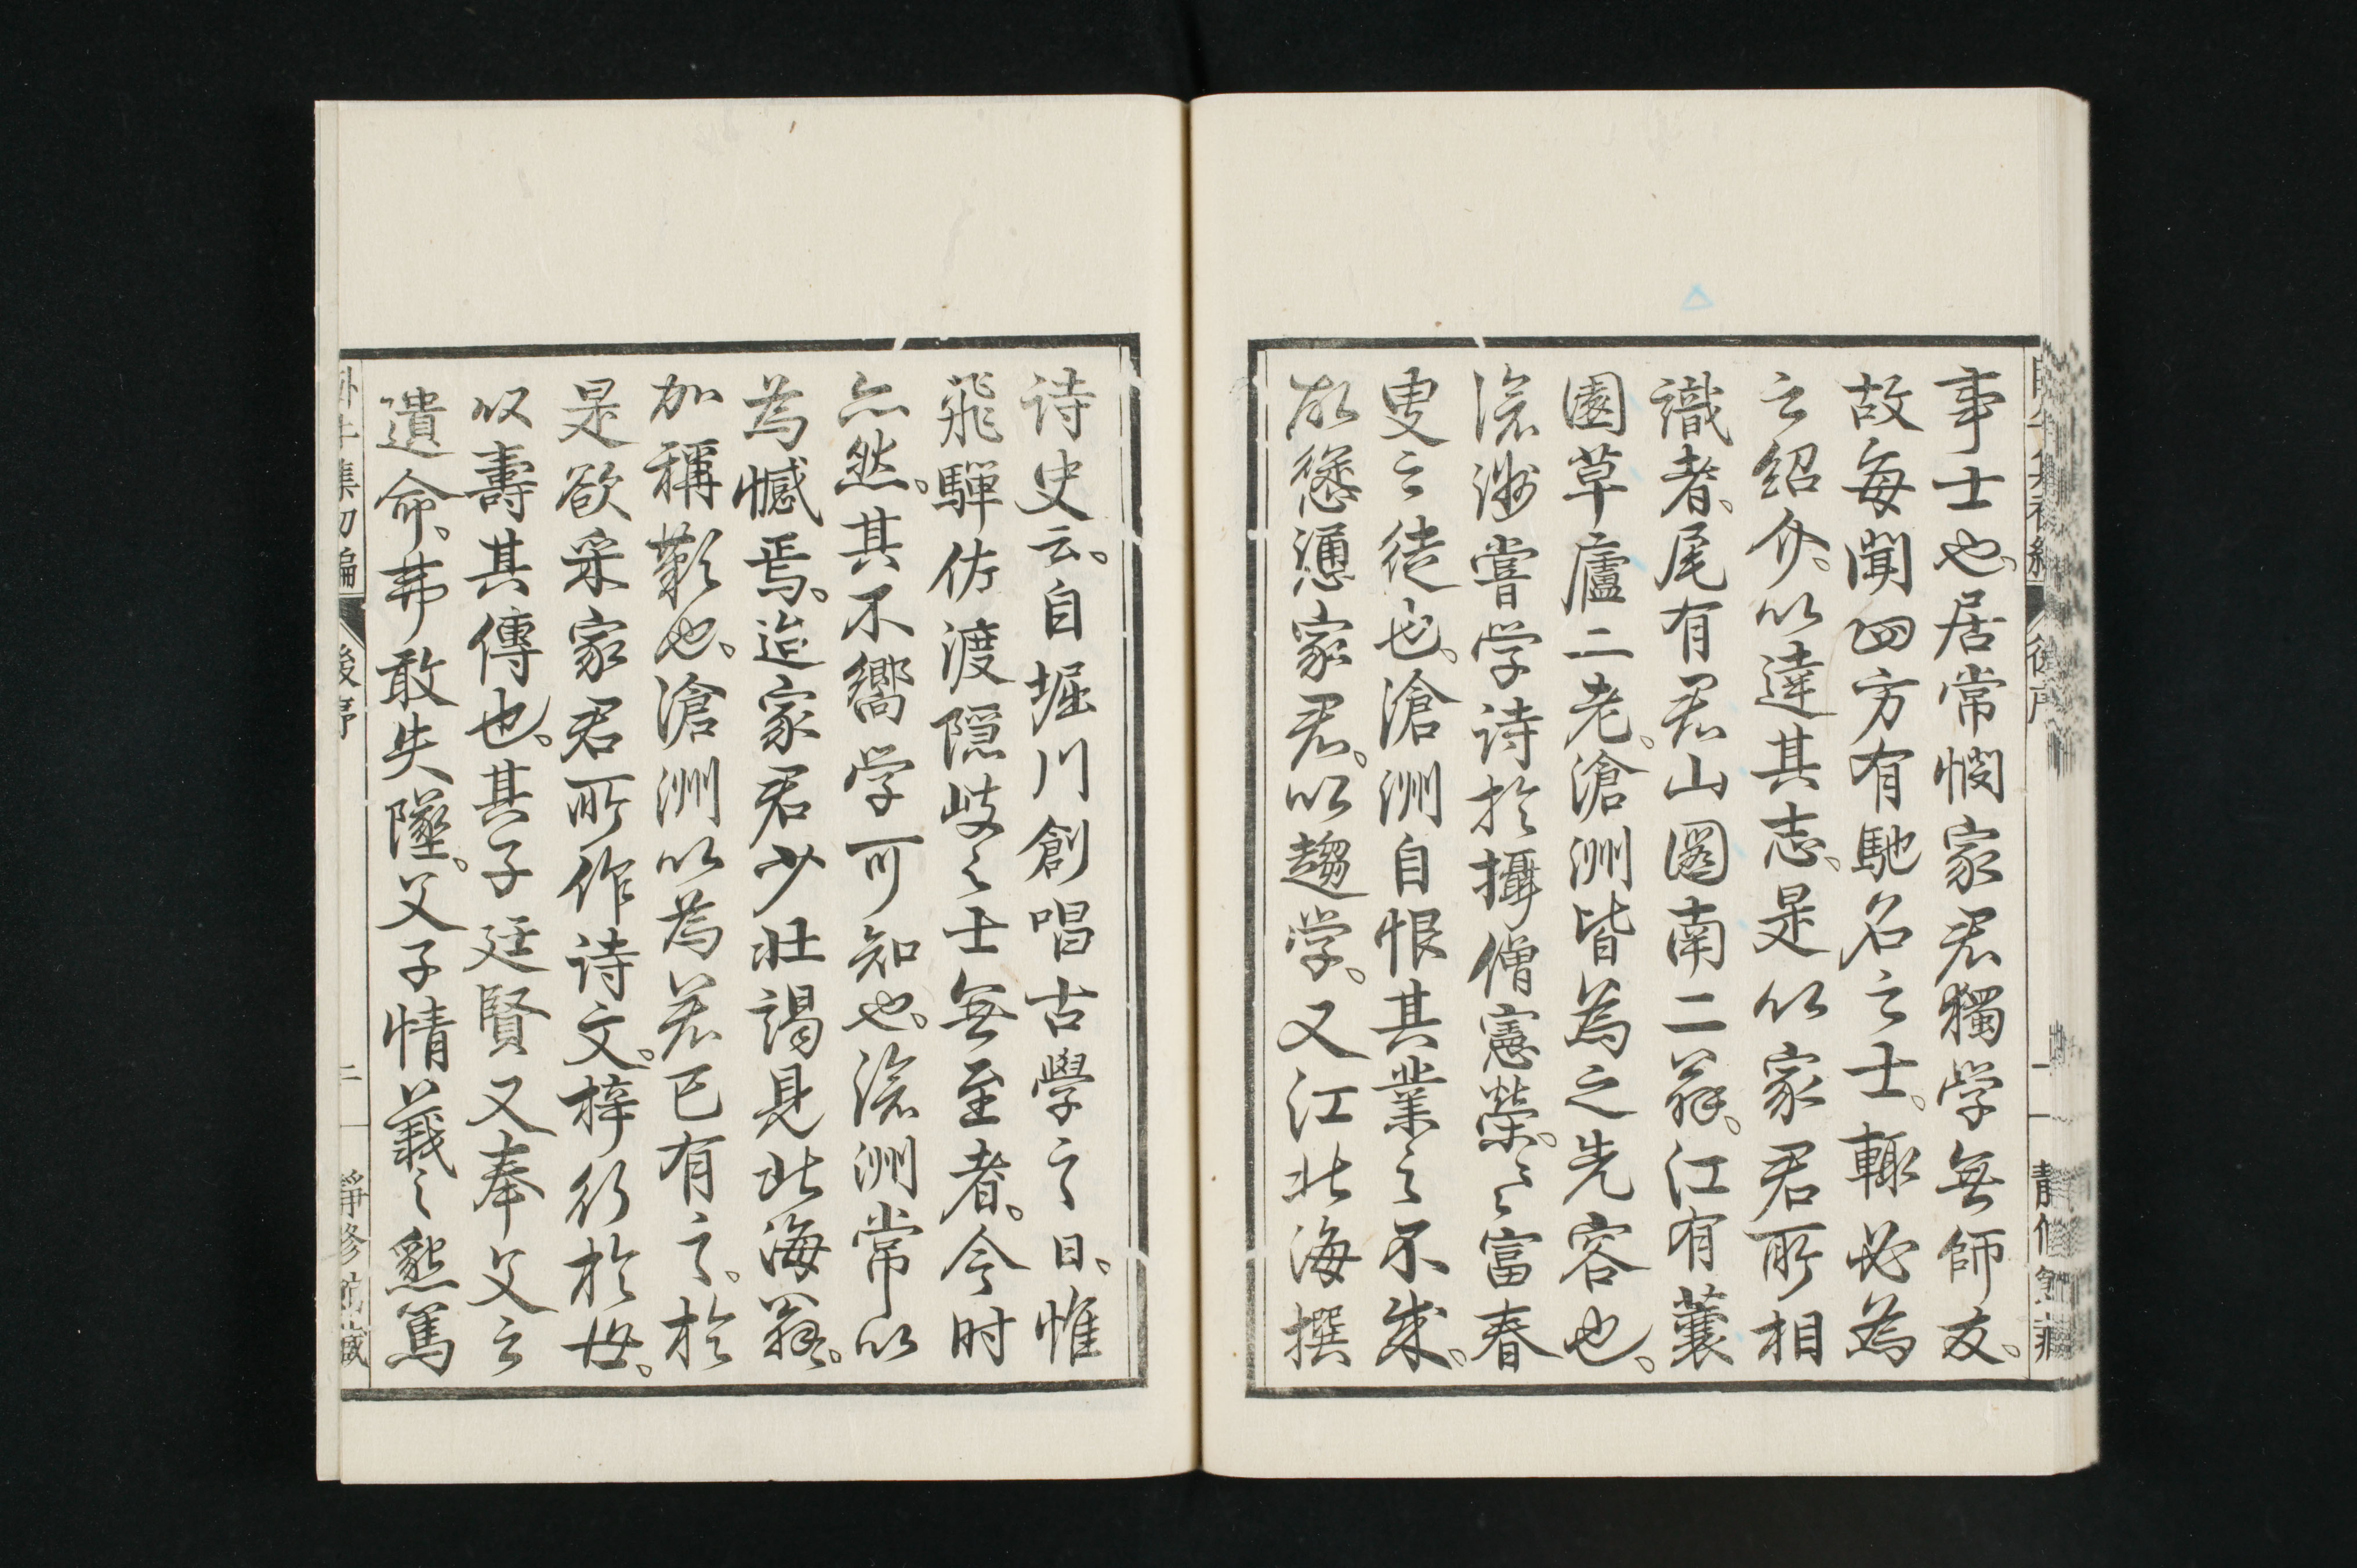 事士也、居常憫家君獨学無師友。
故每聞四方有馳名之士。輙必為
之紹介。以達其志、是以家君所相
識者、尾有君山圖南二翁、江有蘐
園草廬二老。滄洲皆為之先容也。
滄洲嘗学诗於攝僧憲榮。々富春
叟之徒也。滄洲自恨其業之不成。
故慫慂家君。以趨学。又江北海撰
诗史云。自堀川創唱古學之日、惟
飛驒佐渡隠岐之士無至者。今时
亦然。其不嚮学可知也。滄洲常以
為憾焉。迨家君少壮謁見北海翁。
加稱歎也、滄洲以為君已有之。於
是欲采家君所作诗文。梓行於世。
以壽其傳也。其子廷賢又奉父之
遺命。弗敢失墜。父子情義之懇篤
集初編
後序
二
靜修館藏